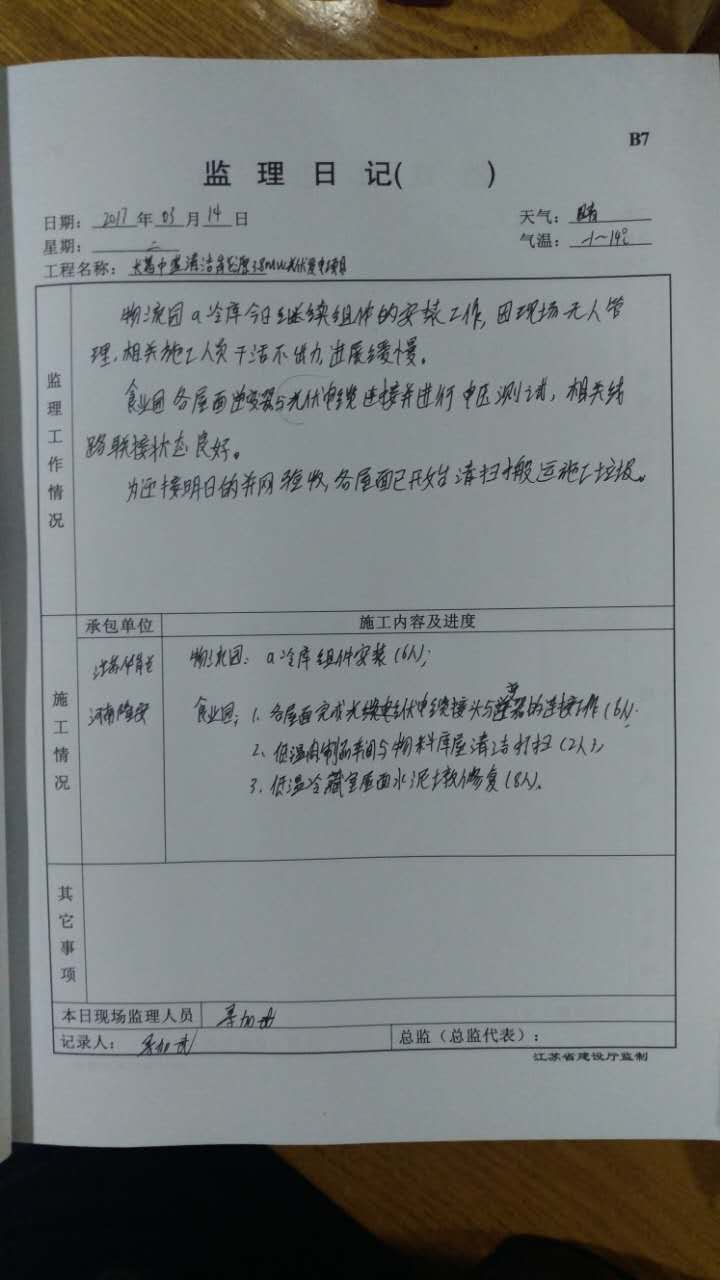 B7
监 理 日 记( )
日期: 2017 年 03 月 14 日
天气: 晴
星期: 二
气温: -1~14℃
工程名称: 长葛中孚清洁能源38MW光伏发电项目
监理工作情况
物流园a冷库今日继续组件的安装工作,因现场无人管
理,相关施工人员干活不出力,进展缓慢。
食业园各屋面逆变器与光伏电缆连接并进行电压测试,相关线
路联接状态良好。
为迎接明日的并网验收,各屋面已开始清扫搬运施工垃圾。
承包单位
施工内容及进度
施工情况
物流园: a冷库组件安装(6人);
河南隆安
食业园: 1. 各屋面完成光伏电缆接头与逆变器的连接工作(6人)
2. 低温肉制品车间与物料库屋清洁打扫(2人);
3. 低温冷藏室屋面水泥墩修复(8人)。
其它事项
本日现场监理人员
记录人:
总监(总监代表):
江苏省建设厅监制